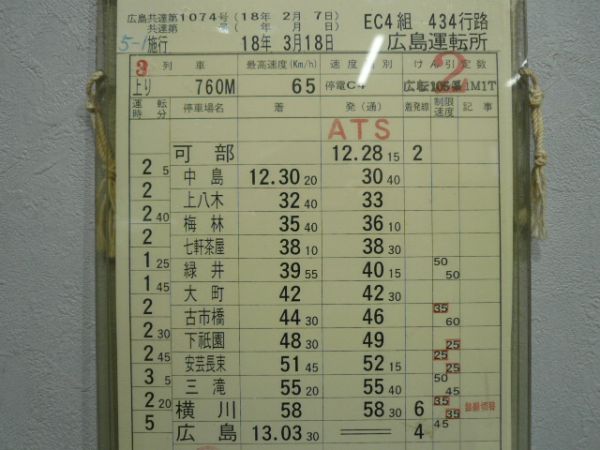 広島共達第1074号(18年 2月 7日) EC4組 434行路
共達第 号( 年 月 日)
5-1施行 18年 3月18日 広島運転所
3 列車 最高速度(Km/h) 速度種別 けん引定数
上り 760M 65 停電C4 広転105系1M1T
2
運転時分 停車場名 着 発(通) 着発線 制限速度 記事
ATS
可部 12.28 15 2
2 5
中島 12.30 20 30 40
2
上八木 32 40 33
2 40
梅林 35 40 36 10
2
七軒茶屋 38 10 38 30
1 25
緑井 39 55 40 15 50 50
1 45
大町 42 42 30
2
古市橋 44 30 46 35 60
2 30
下祇園 48 30 49 25
2 45
安芸長束 51 45 52 15 25
3 5
三滝 55 20 55 40 50 45
2 20
横川 58 58 30 6 35 35
5
広島 13.03 30 4 45